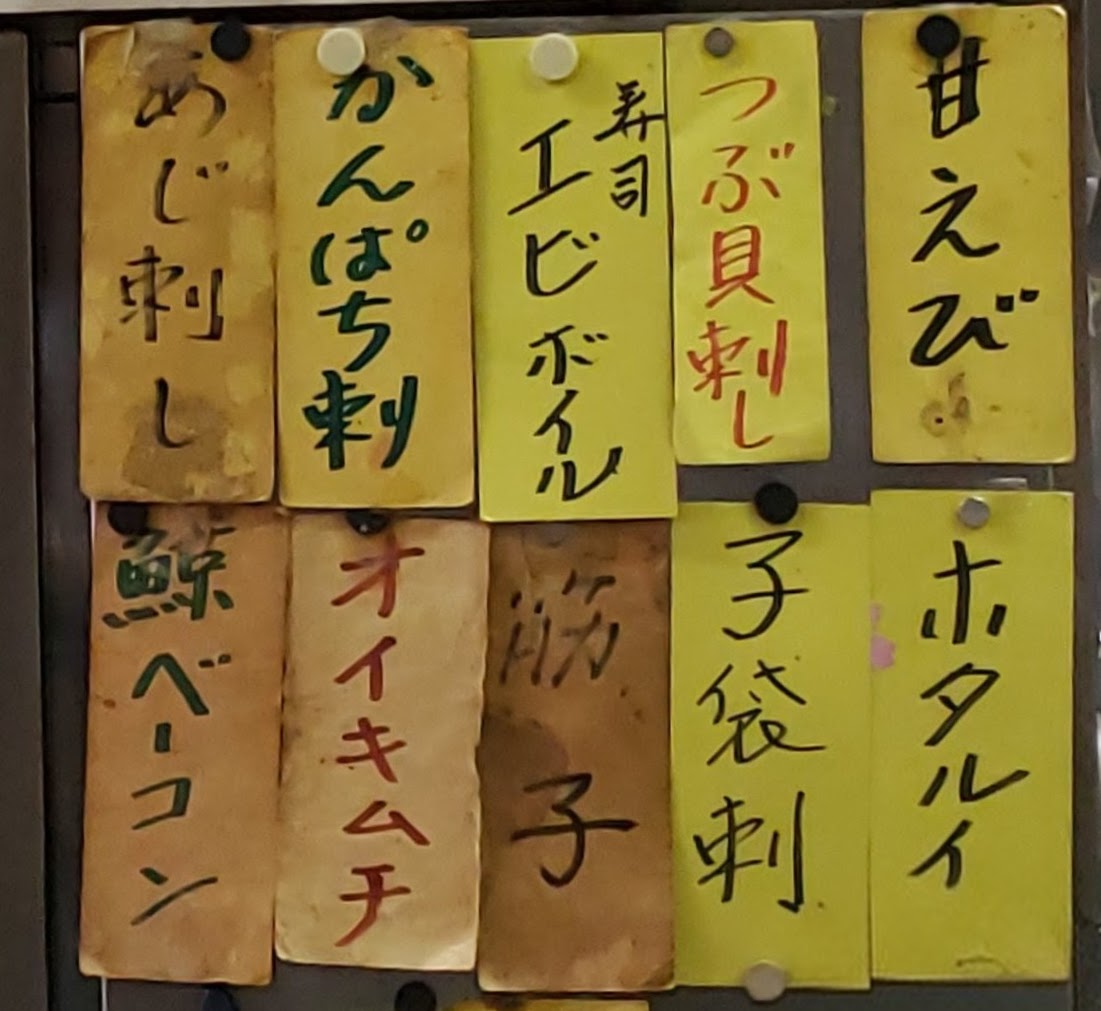 甘えび
つぶ貝刺し
寿司
エビボイル
かんぱち刺
あじ刺し
ホタルイ
子袋刺
筋子
オイキムチ
鯨ベーコン